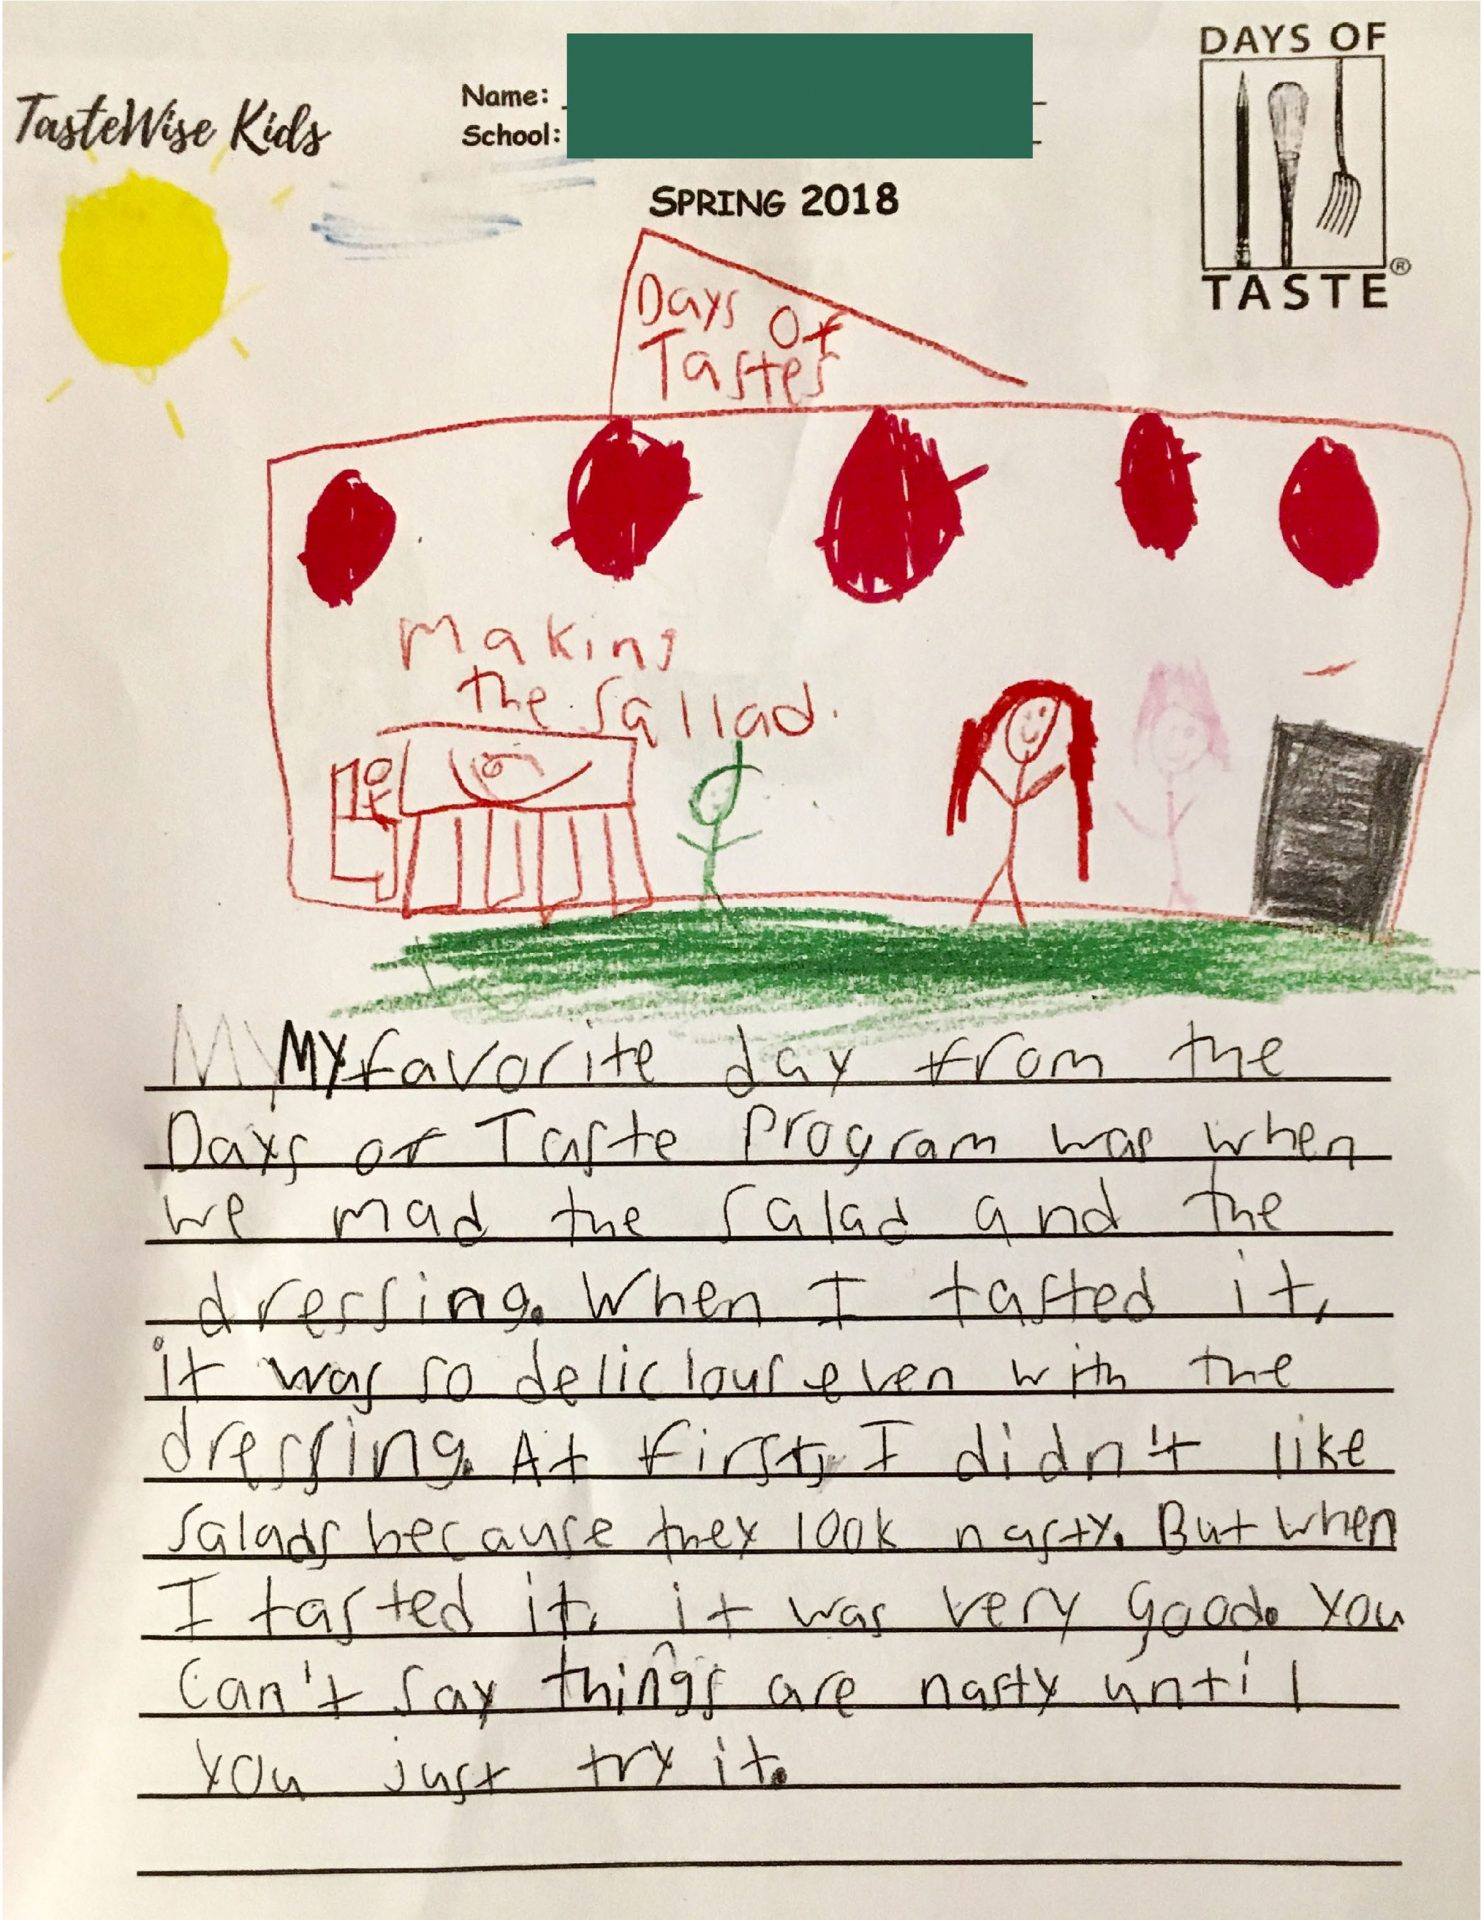 TasteWise Kids
Name:
School:
SPRING 2018
DAYS OF
TASTE®
Days Of
Tastes
Making
the Sallad.
My My favorite day from the
Days of Taste Program was when
we mad the salad and the
dressing. When I tasted it,
it was so delicious even with the
dressing. At first, I didn't like
salads because they look nasty. But when
I tasted it, it was very good. You
Can't say things are nasty until
you just try it.